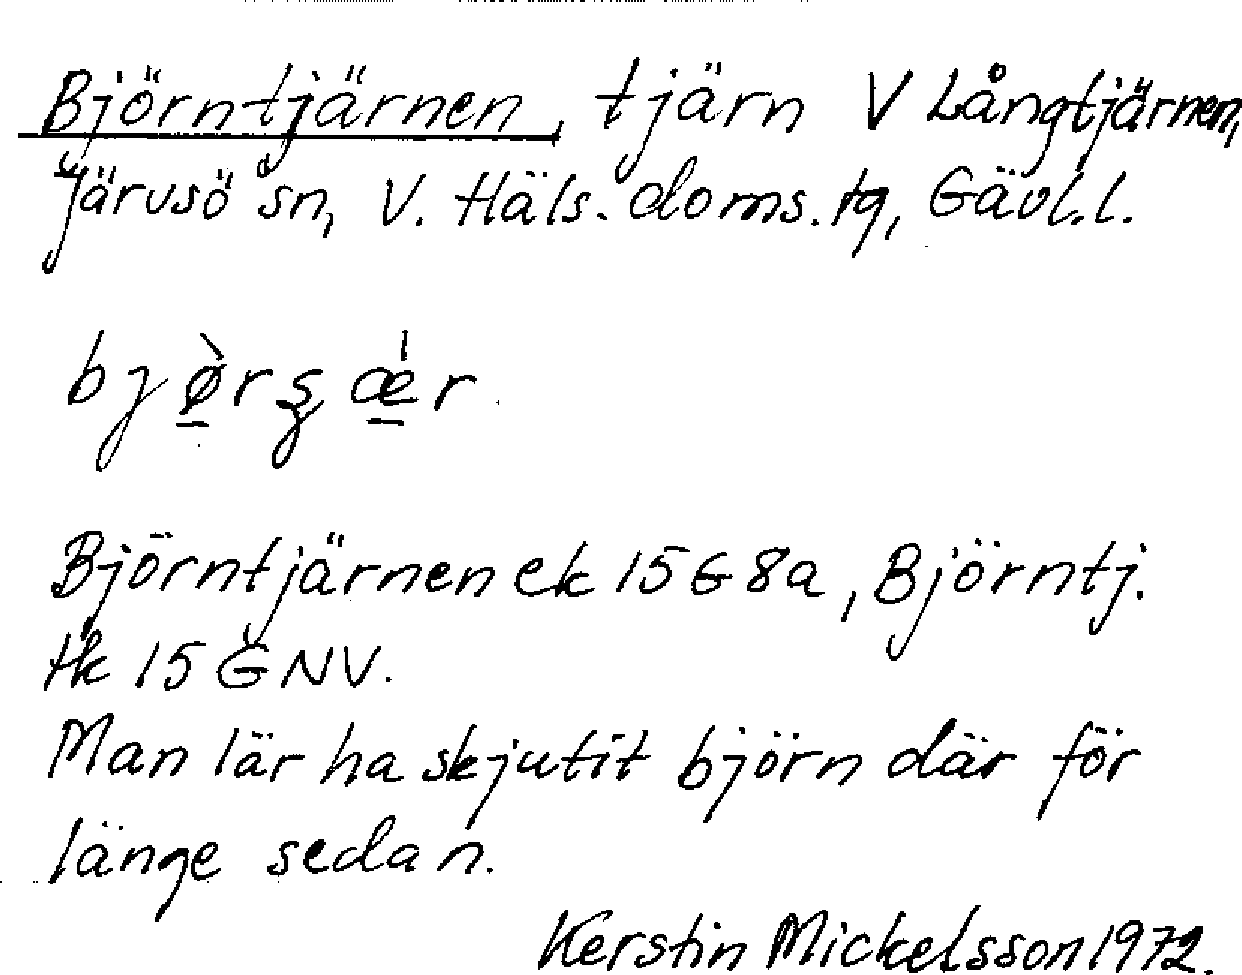 Björntjärnen, tjärn V Långtjärnen,
Järvsö sn, V. Häls. doms. tg, Gävl.l.
Björntjärnen ek 15G8a, Björntj.
tk 15 G NV.
Man lär ha skjutit björn där för
länge sedan.
Kerstin Mickelsson 1972.